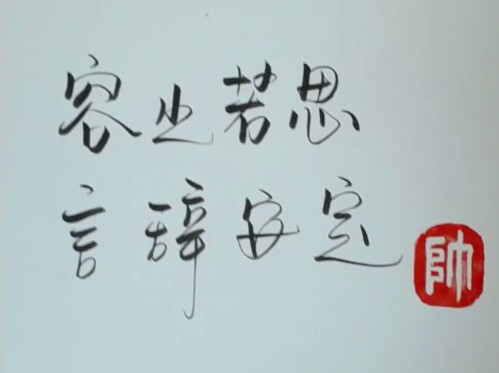 容止若思
言辞安定
帅